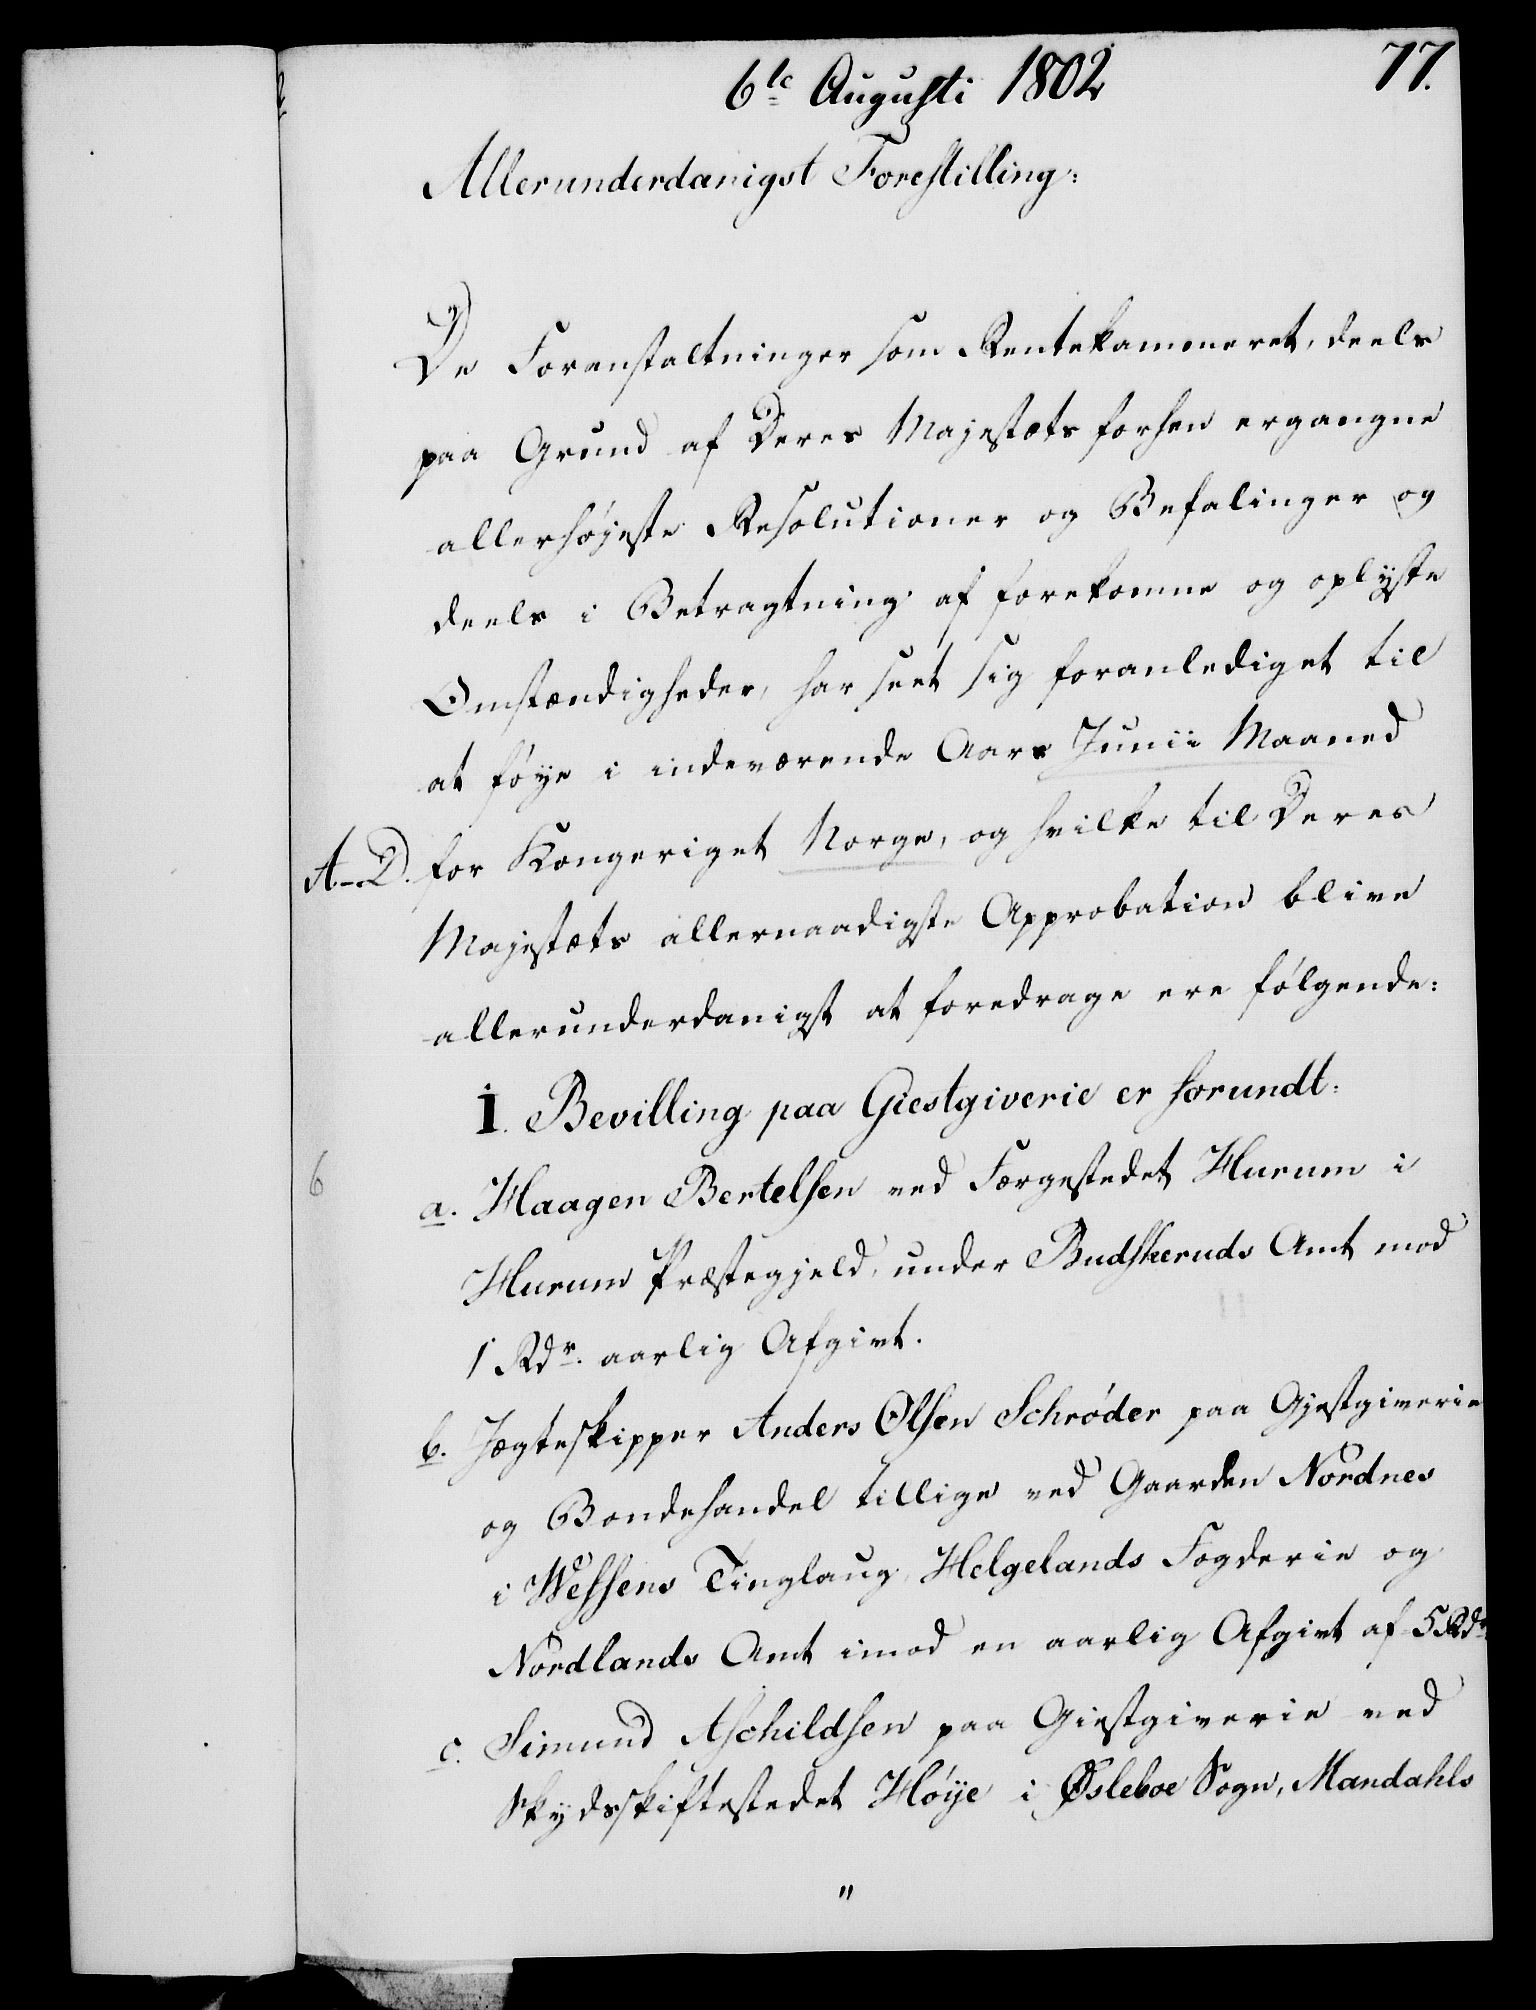 6te Augusti 1802
77.
Allerunderdanigst Forestilling:
De Foranstaltninger som Rentekammeret, deels
paa Grund af Deres Majestæts forhen ergangne
allerhøjeste Resolutioner og Befalinger og
deels i Betragtning af forekomne og oplyste
Omstændigheder, har seet sig foranlediget til
at føye i indeværende Aars Junii Maaned
A-D. for Kongeriget Norge, og hvilke til Deres
Majestæts allernaadigste Approbation blive
allerunderdanigst at foredrage ere følgende:
I. Bevilling paa Giestgiverie er forundt:
6
a. Haagen Bertelsen ved Færgestedet Hurum i
Hurum Præstegjeld, under Budskeruds Amt mod
1 Rdr. aarlig Afgivt.
b. Jægteskipper Anders Olsen Schrøder paa Gjestgiverie
og Bondehandel tillige ved Gaarden Nordnes
i Wefsens Tinglaug, Helgelands Fogderie og
Nordlands Amt imod en aarlig Afgivt af 5 Rdr.
c. Simund Aschildsen paa Giestgiverie ved
Skydsskiftestedet Høÿe i Øsleboe Sogn, Mandahls
"